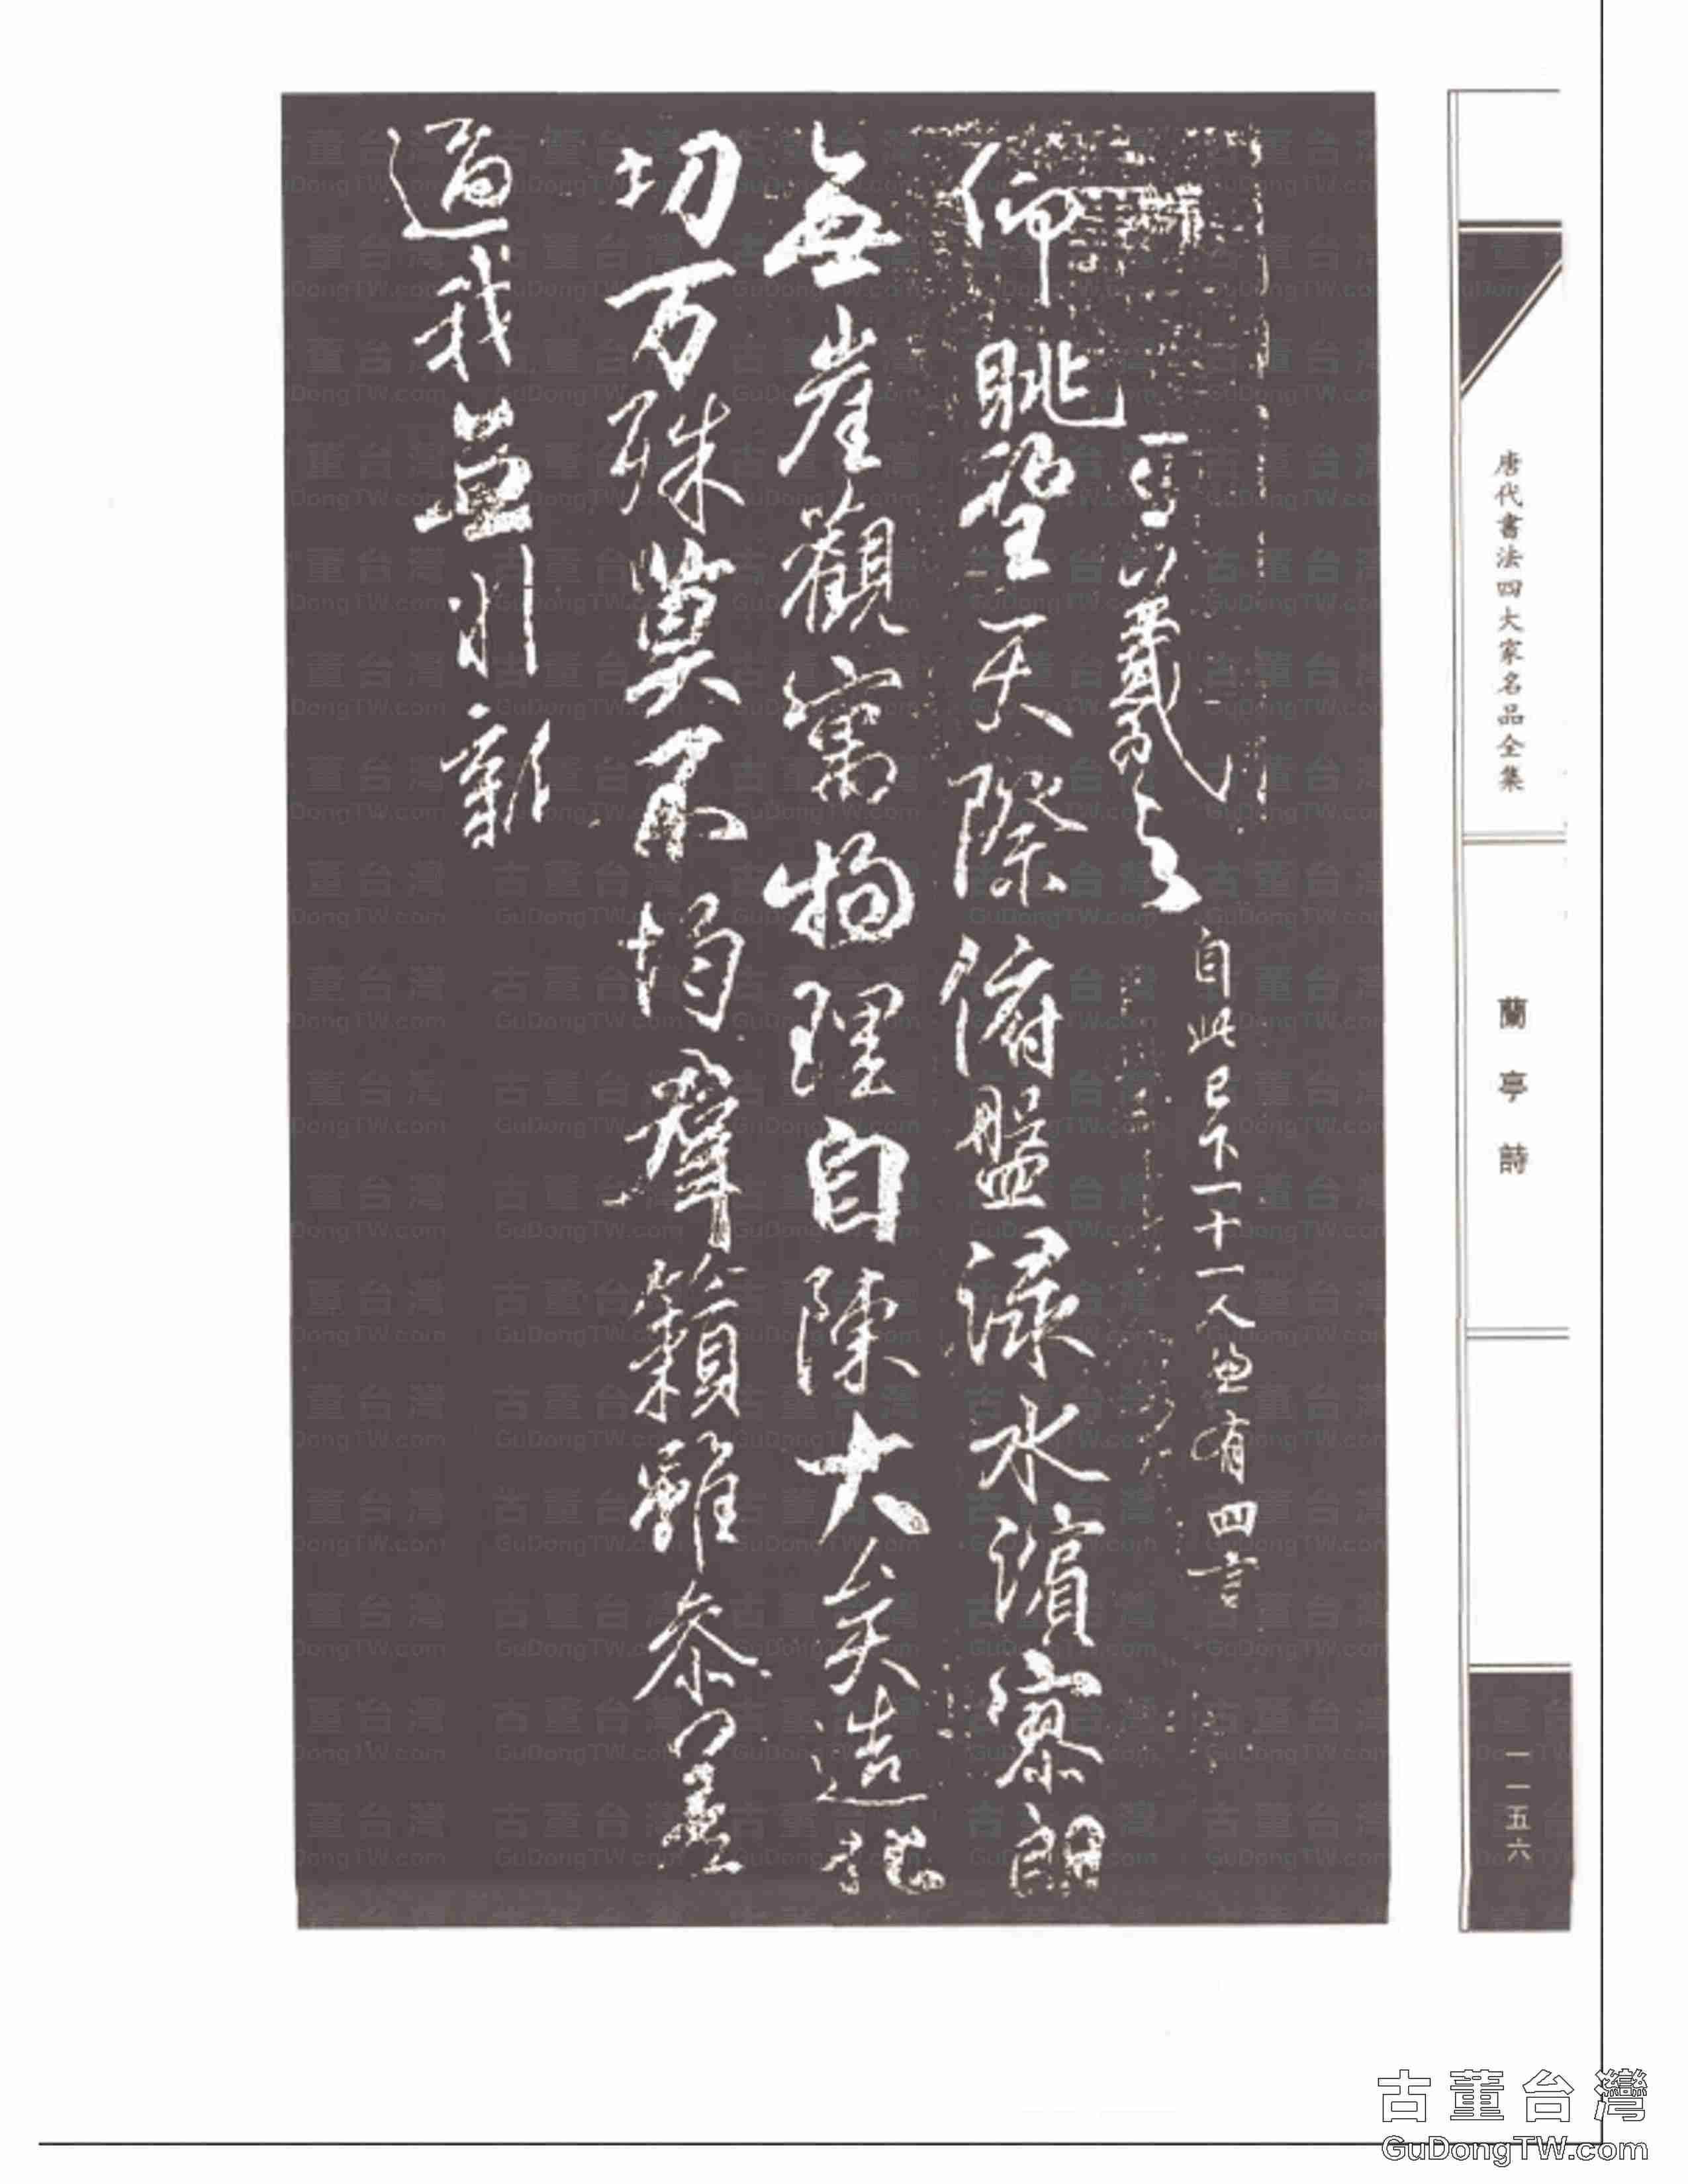 唐代書法四大家名品全集
蘭亭詩
一一五六
羲之 自此已下一十一人並有四言
仰眺望天際俯盤淥水濵寥朗
無崖觀寓物理自陳大矣造化
功万殊莫不均群籟雖叅差
適我無非新
古董台灣
GuDongTW.com